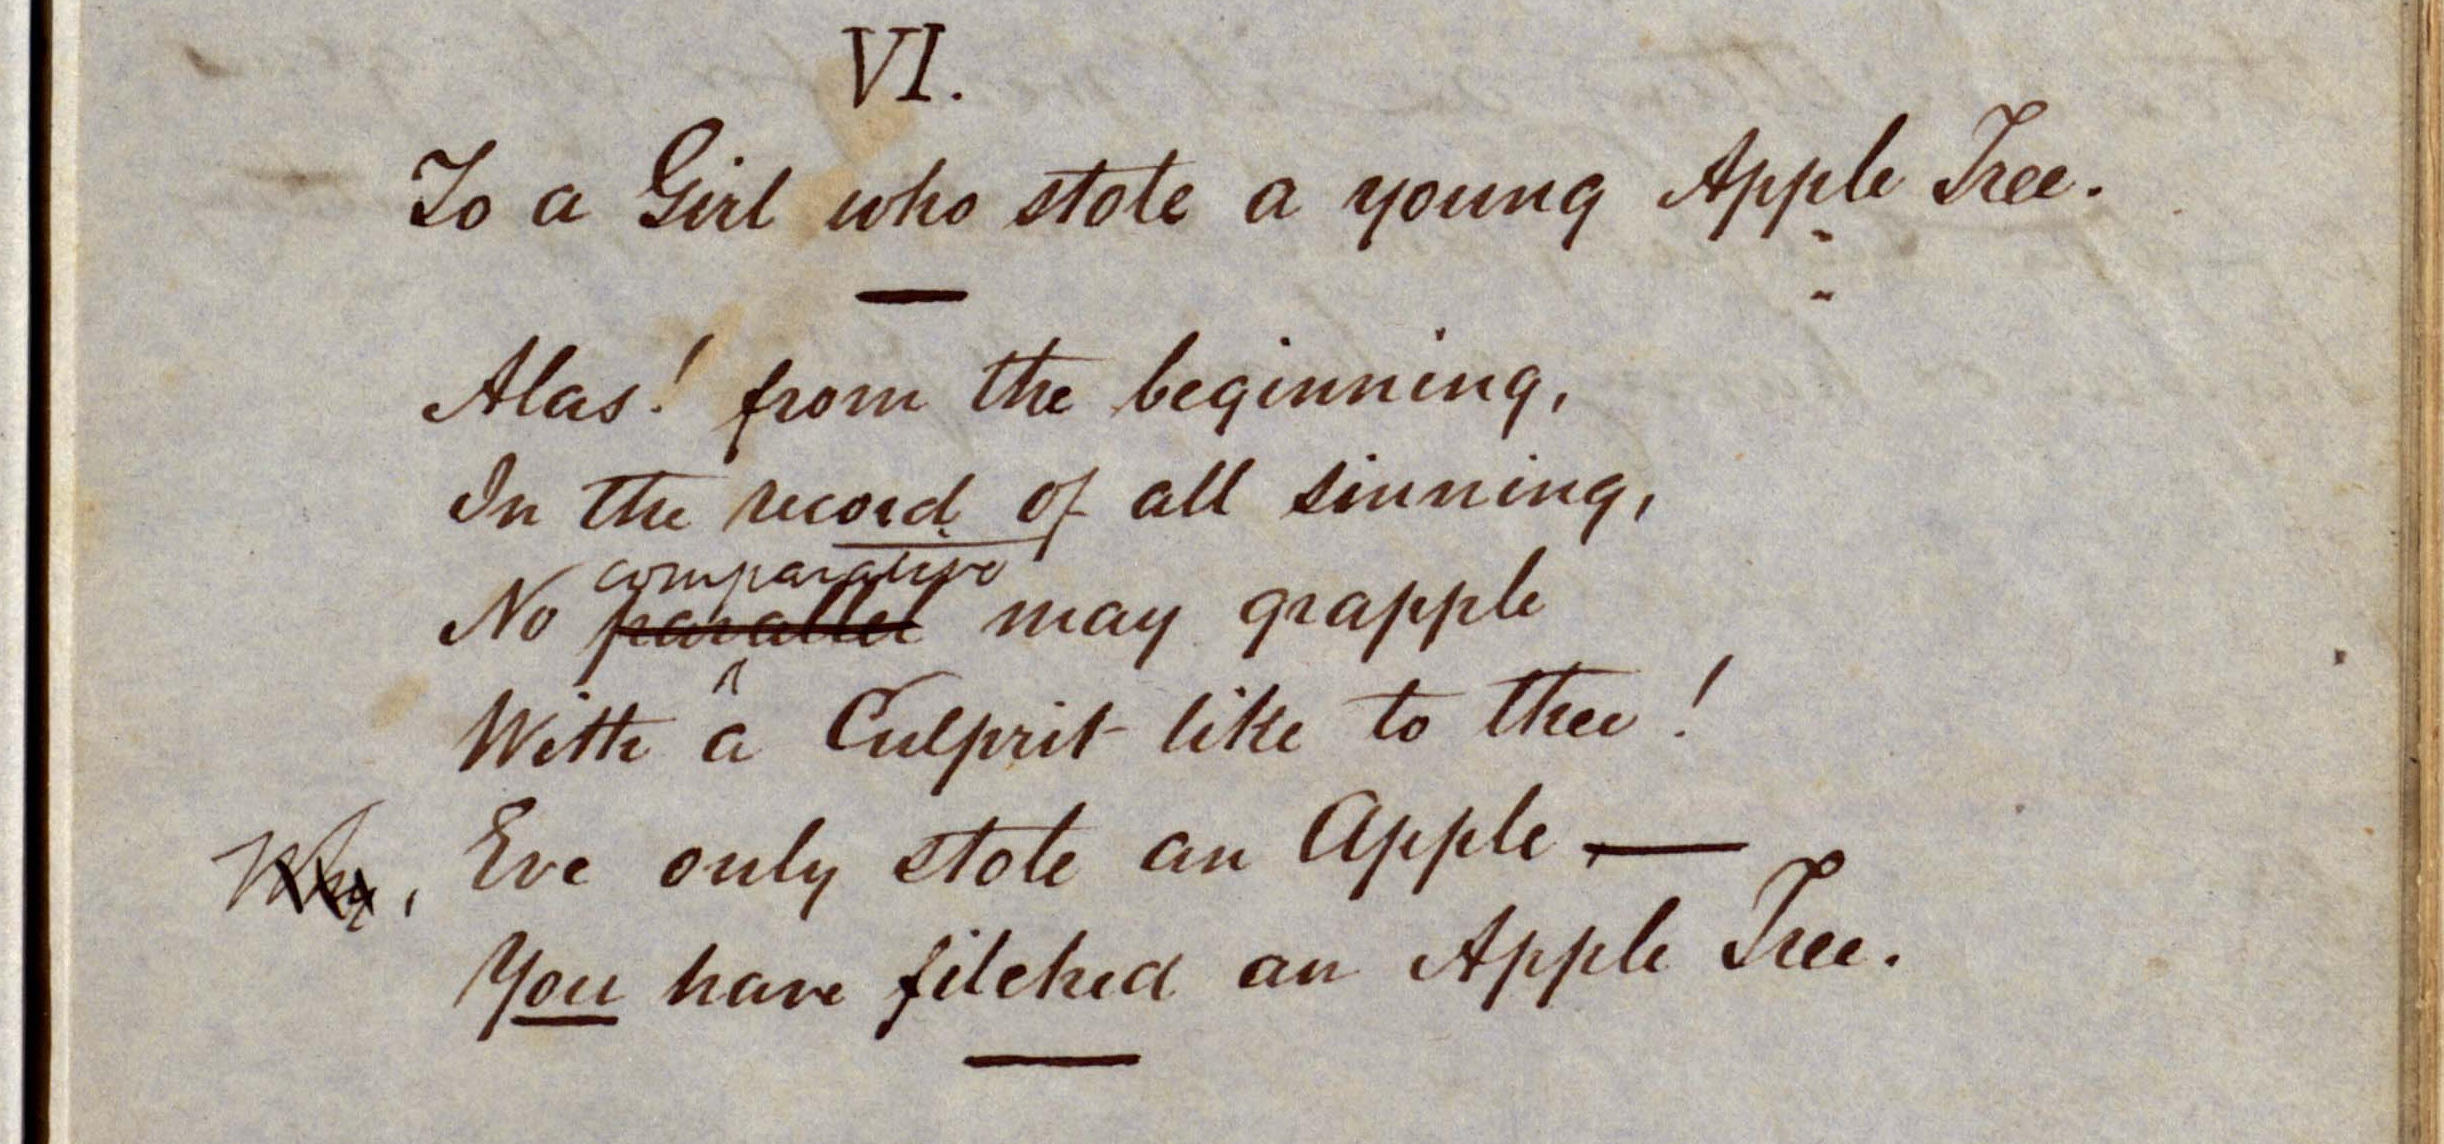 VI.
To a Girl who stole a young Apple Tree.
Alas! from the beginning,
In the record of all sinning,
comparative
No parallel may grapple
With a Culprit like to thee!
Why, Eve only stole an Apple —
You have filched an Apple Tree.